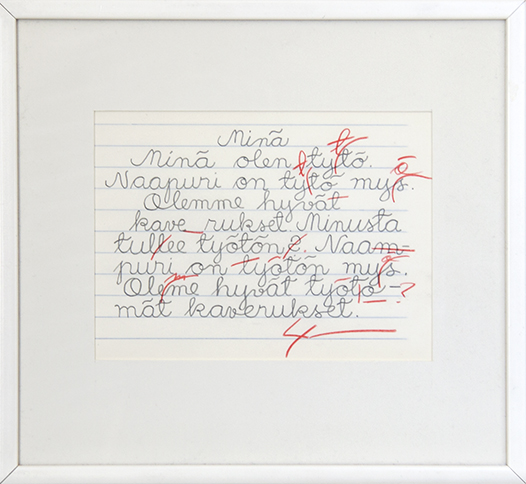 Minä
Minä olen tytö.
Naapuri on tytö mys.
Olemme hyvät
kave rukset. Minusta
tullee työtön2. Naam-
puri on työtön mys.
Oleme hyvät työtö- ?
mät kaverukset.
4-